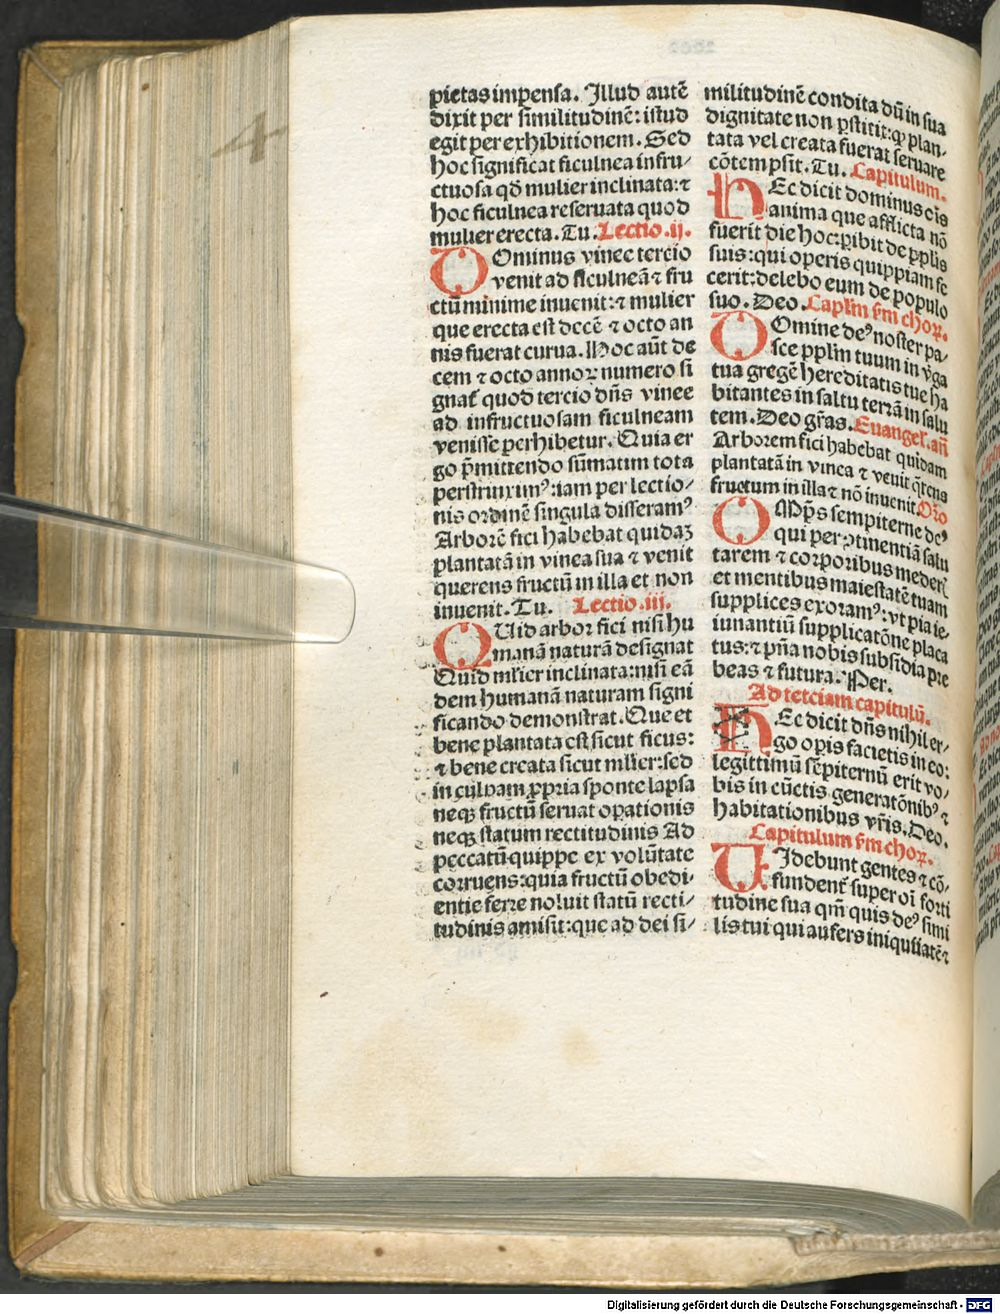 pietas impensa. Illud autē
dixit per similitudinē: istud
egit per exhibitionem. Sed
hoc significat ficulnea infru-
ctuosa qd̄ mulier inclinata: ⁊
hoc ficulnea reseruata quod
mulier erecta. Tu. Lectio .ij.
DOminus vinee tercio
venit ad ficulneā ⁊ fru
ctū minime inuenit: ⁊ mulier
que erecta est decē ⁊ octo an
nis fuerat curua. Hoc aūt de
cem ⁊ octo annoꝝ numero si
gnat̄ quod tercio dn̄s vinee
ad infructuosam ficulneam
venisse perhibetur. Quia er
go p̄mittendo sūmatim tota
perstrinximꝰ: iam per lectio-
nis ordinē singula disseramꝰ
Arborē fici habebat quidaꝫ
plantatā in vinea sua ⁊ venit
querens fructū in illa et non
inuenit. Tu. Lectio .iii.
QUid arbor fici nisi hu
manā naturā designat
Quid ml̄ier inclinata: nisi eā
dem humanā naturam signi
ficando demonstrat. Que et
bene plantata est sicut ficus:
⁊ bene creata sicut ml̄ier: sed
in culpam ꝓpria sponte lapsa
neqꝫ fructū seruat oꝑationis
neqꝫ statum rectitudinis Ad
peccatū quippe ex volūtate
corruens: quia fructū obedi-
entie ferre noluit statū recti-
tudinis amisit: que ad dei si-
militudinē condita dū in sua
dignitate non ꝑstitit: qꝫ plan-
tata vel creata fuerat seruare
cōtempsit. Tu. Capitulum.
HEc dicit dominus oīs
anima que afflicta nō
fuerit die hoc: ꝑibit de pp̄lis
suis: qui operis quippiam fe
cerit: delebo eum de populo
suo. Deo. Capl̄m s̄m choꝝ.
DOmine deꝰ noster pa-
sce pp̄lm tuum in v̄ga
tua gregē hereditatis tue ha
bitantes in saltu terrā in salu
tem. Deo gr̄as. Euangel̄. an̄
Arborem fici habebat quidam
plantatā in vinea ⁊ venit q̄rens
fructum in illa ⁊ nō inuenit. Or̄o
OMp̄s sempiterne deꝰ
qui per ꝯtinentiā salu
tarem ⁊ corporibus mederi̅
et mentibus maiestatē tuam
supplices exoramꝰ: vt pia ie-
iunantiū supplicatōne placa
tus: ⁊ pn̄a nobis subsidia pre
beas ⁊ futura. Per.
Ad terciam capitulū.
HEc dicit dn̄s nihil er-
go oꝑis facietis in eo:
legittimū sēpiternū erit vo-
bis in cūctis generatōnibꝰ ⁊
habitationibus vr̄is. Deo.
Capitulum s̄m choꝝ.
UIdebunt gentes ⁊ cō-
fundent̄ super oī forti
tudine sua qm̄ quis deꝰ simi
lis tui qui aufers iniquitatē ⁊
4
Digitalisierung gefördert durch die Deutsche Forschungsgemeinschaft - DFG